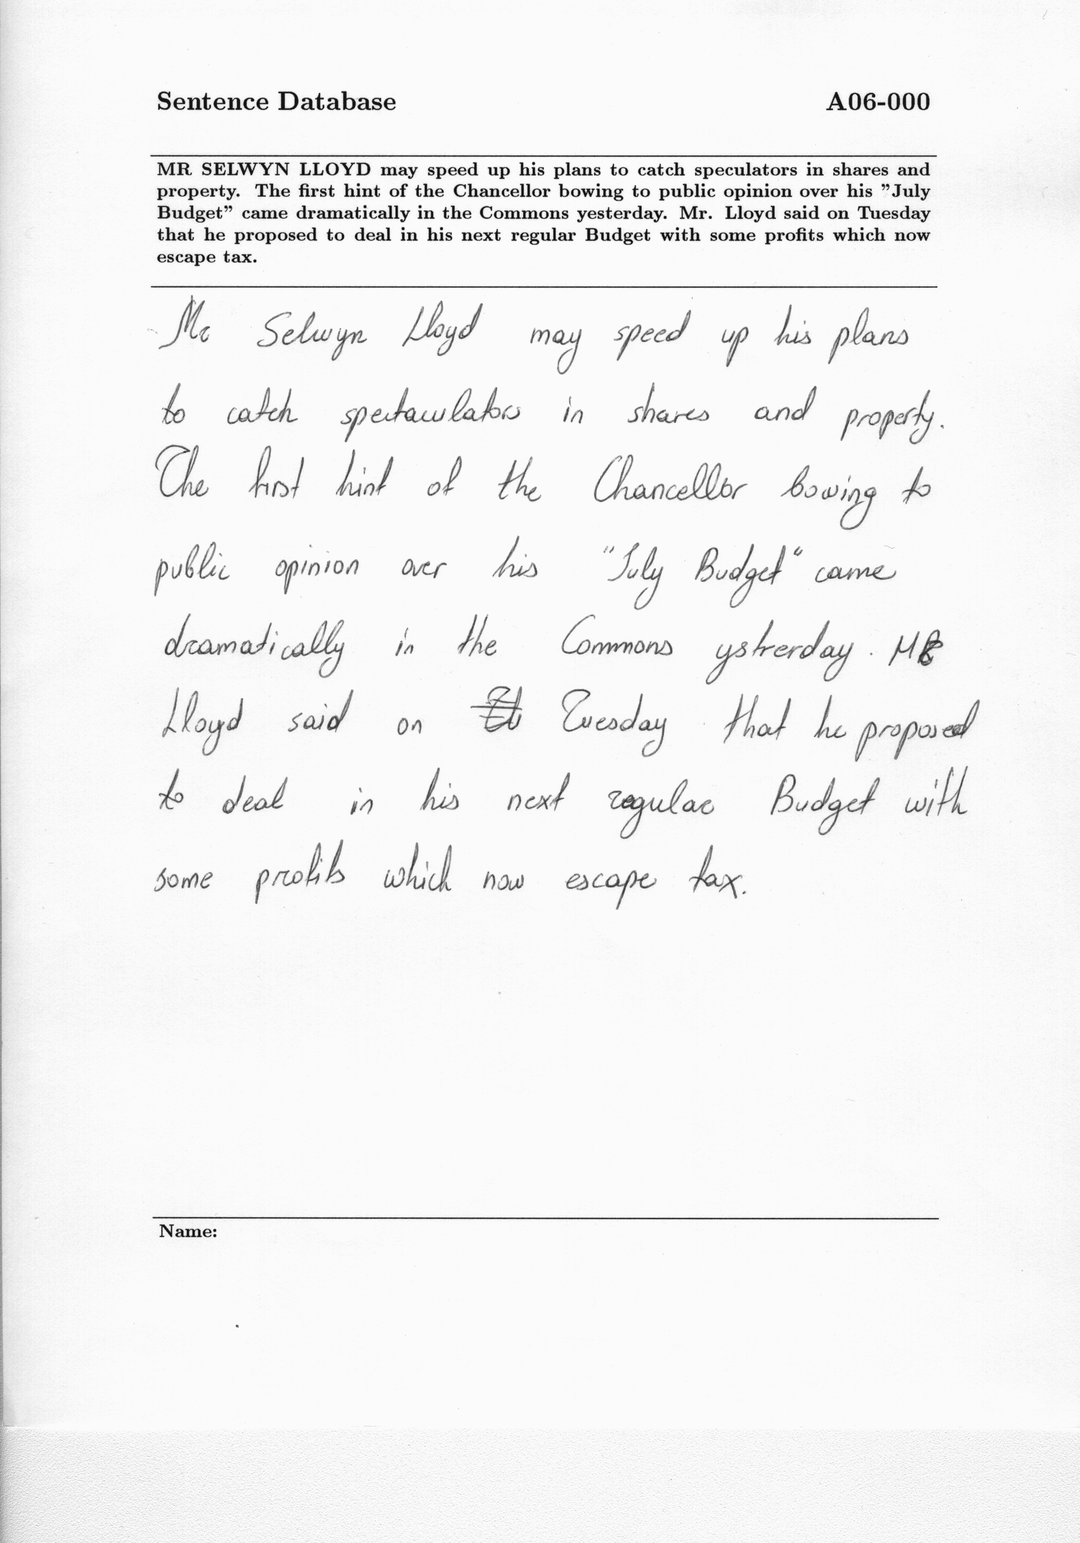 Sentence Database A06-000
MR SELWYN LLOYD may speed up his plans to catch speculators in shares and
property. The first hint of the Chancellor bowing to public opinion over his ”July
Budget” came dramatically in the Commons yesterday. Mr. Lloyd said on Tuesday
that he proposed to deal in his next regular Budget with some profits which now
escape tax.
Mr Selwyn Lloyd may speed up his plans
to catch spectaculators in shares and property.
The first hint of the Chancellor bowing to
public opinion over his "July Budget" came
dramatically in the Commons ystrerday. MR
Lloyd said on Tuesday that he proposed
to deal in his next regular Budget with
some profits which now escape tax.
Name: